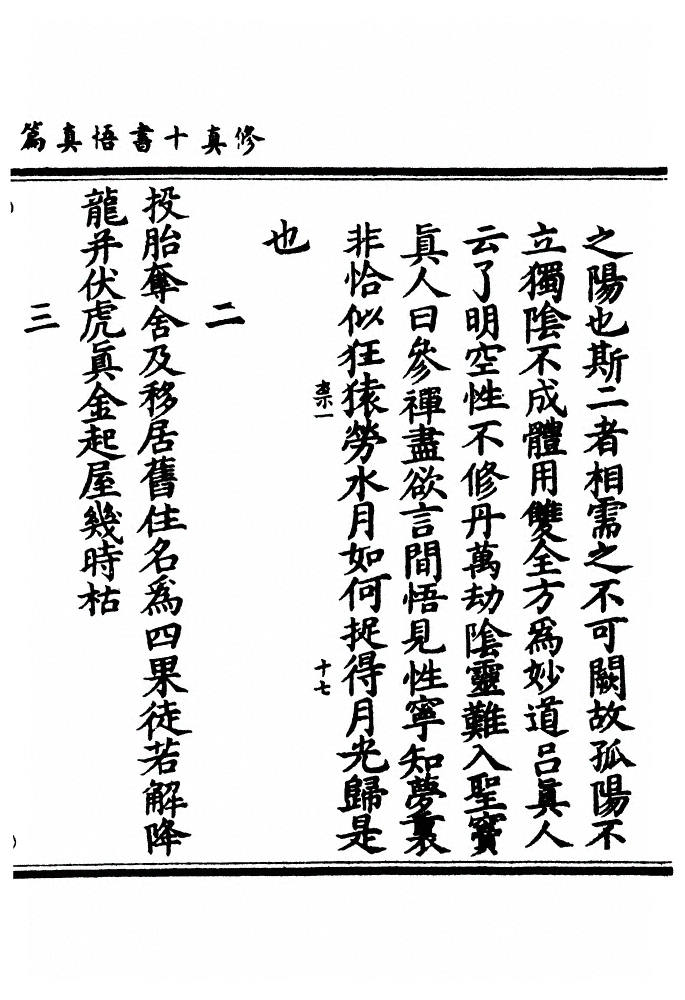 修真十書悟真篇
之陽也斯二者相需之不可闕故孤陽不
立獨陰不成體用雙全方爲妙道呂眞人
云了明空性不修丹萬劫陰靈難入聖寶
眞人曰參禪盡欲言間悟見性寧知夢裏
非恰似狂猿勞水月如何捉得月光歸是
柰一
十七
也
二
投胎奪舍及移居舊住名爲四果徒若解降
龍并伏虎眞金起屋幾時枯
三